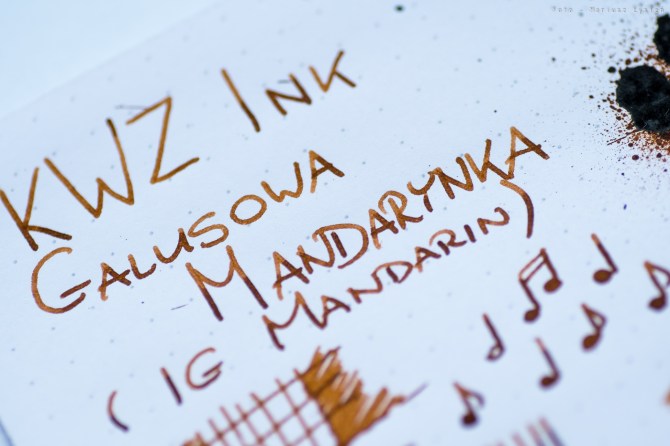 Foto - Mariusz
KWZ INK
GALUSOWA
MANDARYNKA
(IG MANDARIN)